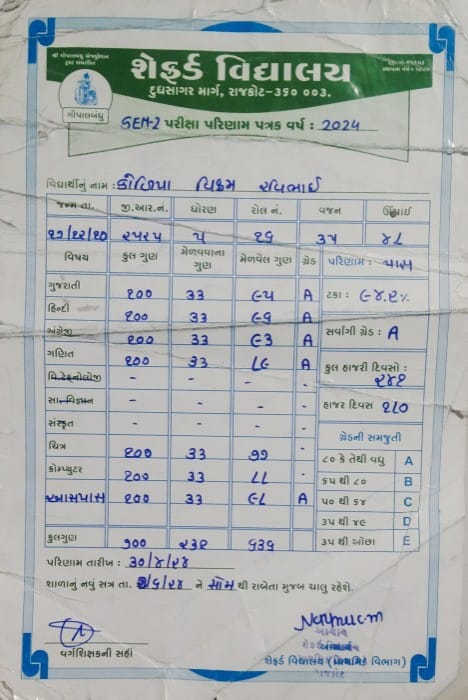 શ્રી ગોપાલબંધુ એજ્યુકેશન
ટ્રસ્ટ સંચાલિત
ગોપાલબંધુ
શેફર્ડ વિદ્યાલય
દુધસાગર માર્ગ, રાજકોટ-૩૬૦ ૦૦૩.
SEM-2 પરીક્ષા પરિણામ પત્રક વર્ષ : 2024
વિદ્યાર્થીનું નામ : વિક્રમ રવિભાઈ
જન્મ તા. જી.આર.નં. ધોરણ રોલ નં. વજન ઊંચાઈ
૨૫૨૫ ૫ ૨૬ ૩૫ ૪૮
વિષય કુલ ગુણ મેળવવાના ગુણ મેળવેલ ગુણ ગ્રેડ પરિણામ : પાસ
ગુજરાતી ૧૦૦ ૩૩ ૯૫ A ટકા : ૯૪.૨%
હિન્દી ૧૦૦ ૩૩ ૯૬ A
અંગ્રેજી ૧૦૦ ૩૩ ૯૩ A સર્વાંગી ગ્રેડ : A
ગણિત ૧૦૦ ૩૩ ૮૯ A કુલ હાજરી દિવસો : ૨૪૧
વિ.ટેકનોલોજી - - - -
સા.વિજ્ઞાન - - - - હાજર દિવસ ૨૧૦
સંસ્કૃત - - - - ગ્રેડની સમજુતી
ચિત્ર ૧૦૦ ૩૩ ૭૭ - ૮૦ કે તેથી વધુ A
કોમ્પ્યુટર ૧૦૦ ૩૩ ૮૮ - ૬૫ થી ૮૦ B
આસપાસ ૧૦૦ ૩૩ ૯૮ A ૫૦ થી ૬૪ C
૩૫ થી ૪૯ D
કુલગુણ ૭૦૦ ૨૩૧ ૬૩૬ ૩૫ થી ઓછા E
પરિણામ તારીખ : ૩૦/૪/૨૪
શાળાનું નવું સત્ર તા. ને સોમ થી રાબેતા મુજબ ચાલુ રહેશે.
વર્ગશિક્ષકની સહી
આચાર્ય
શેફર્ડ વિદ્યાલય (પ્રાથમિક વિભાગ)
રાજકોટ